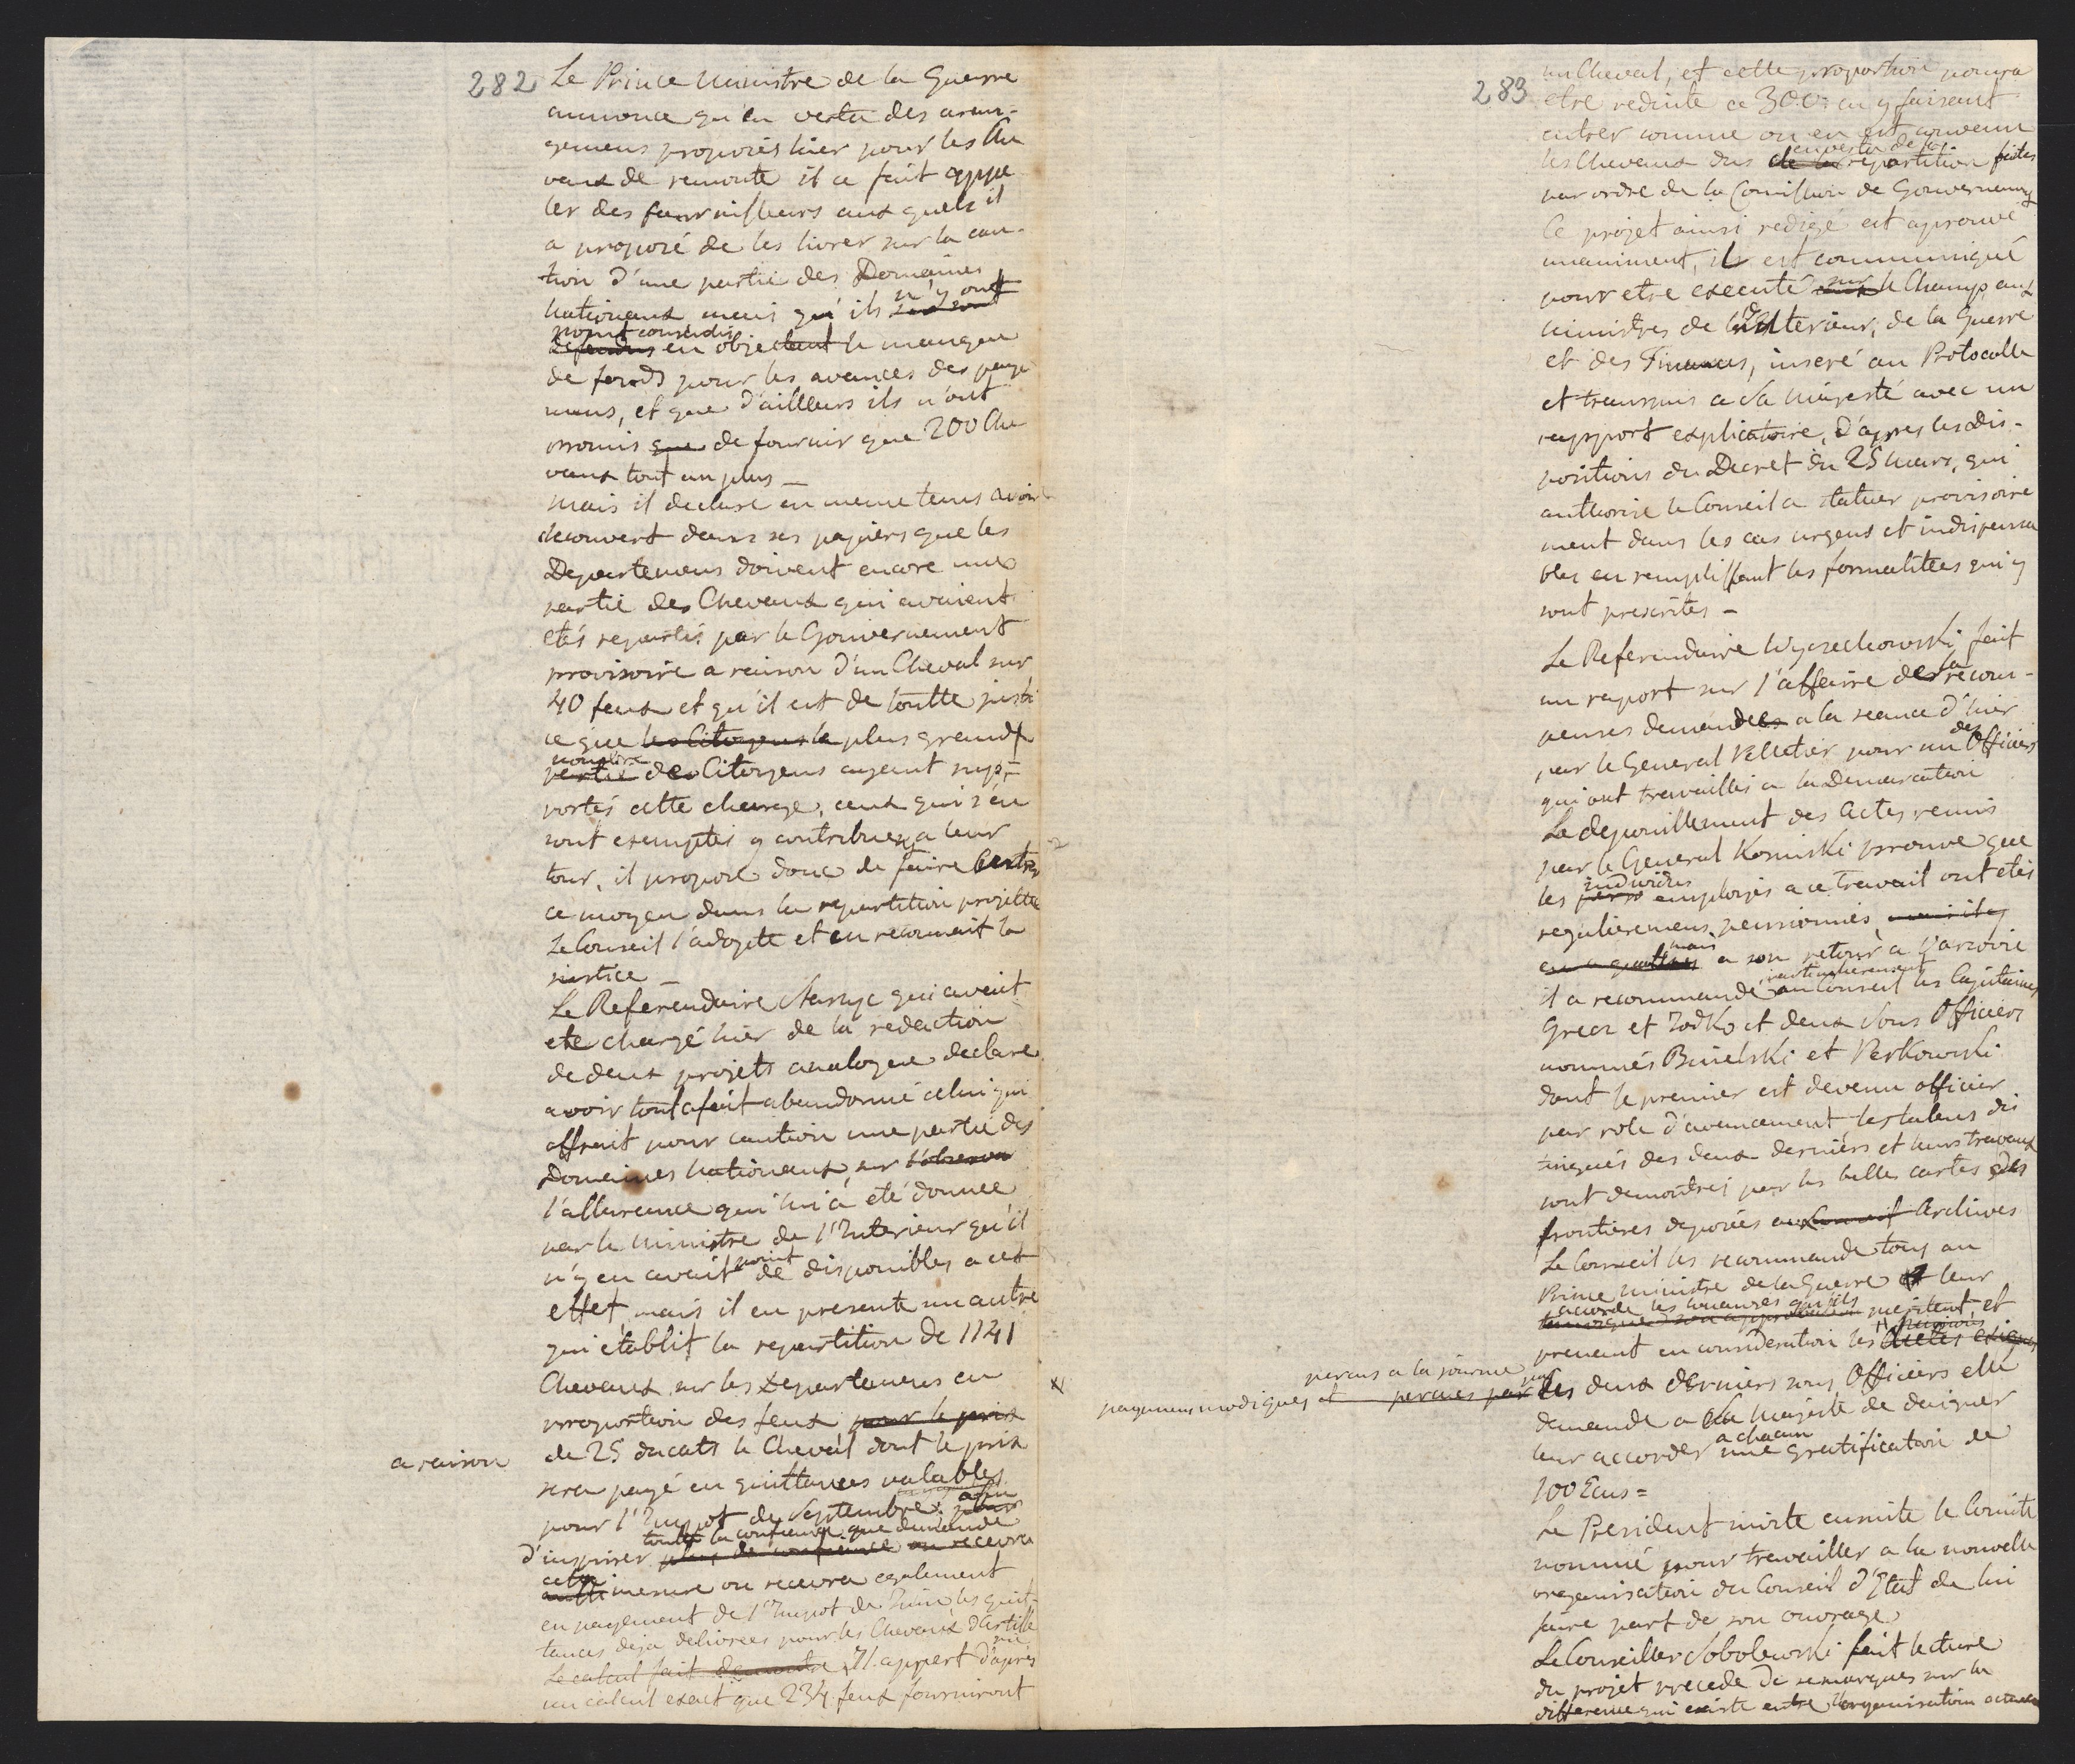 282
Le Prince Ministre de la Guerre
annonce qu'en vertu des aran-
gemens proposés hier pour les Che
vaux de remonte il a fait appe
ler des fournisseurs aux quels il
a proposé de les livrer sur la cau-
tion d'une partie des Domaines
Nationaux mais qu'ils n'y ont
point consendis
en objectant le manque
de fonds pour les avances des paye
mens, et que d'ailleurs ils n'ont
promis que de fournir que 200 Che
vaux tout au plus _
Mais il declare en meme tems avoir
decouvert dans ses papiers que les
Departemens doivent encore une
partie des Chevaux qui avaient
etés repartis par le Gouvernement
provisoire a raison d'un Cheval sur
40 feux et qu'il est de toutte justi
ce que les Citoyens le plus grand
nombre
partie des Citoyens ayant sup-
portés cette charge, ceux qui s'en
sont exemptés y contribuent a leur
tour, il propose donc de faire entrer
ce moyen dans la repartition projettée
Le Conseil l'adopte et en reconnait la
justice _
Le Referendaire qui avait
eté chargé hier de la redaction
de deux projets analogue declare
avoir tout afait abandonné celui qui
offrait pour caution une partie des
Domaines Nationaux, sur
l'assurance qui lui a eté donnée
par le Ministre de l'Interieur qu'il
n'y en avait point de disponibles a cet
effet, mais il en presente un autre
qui établit la repartition de 1141
Chevaux sur les Departemens en
proportion des feux pour le prix
a raison
de 25 ducats le Cheval dont le prix
sera payé en quittances valables
pour l'Impot de Septembre, afin
toutte la confiance que demande
d'inspirer plus de confiance on recevra
cette
mesure on recevra egalement
en payement de l'Impot de Juin les quit-
tances deja delivrees pour les Chevaux d'Artille
rie
Le calcul fait demontre Il appert d'après
un calcul exact que 234 feux fourniront
283
un Cheval, et cette proportion poura
etre reduite a 300: en y faisant
entrer comme on en est convenu
en vertu de la
les Chevaux dus de la repartition faites
par ordre de la Comission de Gouvernement
Ce projet ainsi redigé est aprouvé
unaniment, il est communiqué
pour etre executé sur le Champ aux
Ministres de l'Interieur, de la Guerre
et des Finances, inseré au Protocolle
et transmis a Sa Majesté avec un
rapport explicatoire, d'apres les dis-
positions du Decret du 25 Mars, qui
authorise le Conseil a statuer provisoire
ment dans les cas urgens et indispensa
bles en remplissant les formalitées qui y
sont prescrites _
Le Referendaire Wyczechowski fait
un raport sur l'affaire de la recom-
penses demandées a la seance d'hier
par le General Pelletier pour des Officiers
qui ont travaillés a la Demarcation
Le depouillement des Actes remis
par le General Kosinski prouve que
individus
les employés a ce travail ont etés
regulieremens pensionnés,
mais
a son retour a Varsovie
particulierement
il a recommandé au Conseil les Capitaines
Grecz et Zodko et deux Sous Officiers
nommés Bmielski et Perkowski
dont le premier est devenu officier
par role d'avancement les talens dis
tingués des deux derniérs et leurs travaux
sont demontrés par les belle cartes des
frontieres deposées au Conseil Archives
Le Conseil les recommande tous au
Prince Ministre de la Guerre et leur
accorde les louanges qu'ils meritent, et
prenant en consideration les
payemens modiques et percus a la journe par
percues par les deux derniers sous Officiers elle
demande a Sa Majeste de daigner
a chacun
leur accorder une gratification de
100 Ecus =
Le President invite ensuite le Comite
nommé pour travailler a la nouvelle
oreganisation du Conseil d'Etat de lui
faire part de son ouvrage
Le Conseiller Sobolewski fait lecture
du projet precede de remarques sur la
difference qui existe entre l'organisation actuelle